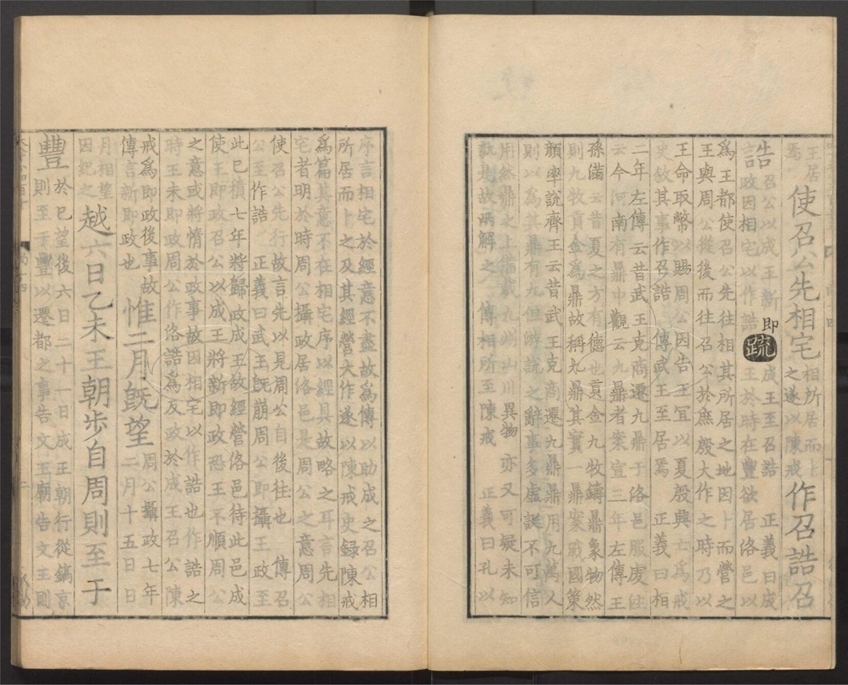 王居焉使召公先相宅相所居而卜之遂以陳戒作召誥召
誥召公以成王新即政因相宅以作誥疏成王至召誥 正義曰成王於時在豐欲居洛邑以
為王都使召公先往相其所居之地因卜而營之
王與周公從後而往召公於庶殷大作之時乃以
王命取幣以賜周公因告王宜以夏殷興亡為戒
史敘其事作召誥 傳武王至居焉 正義曰相
二年左傳云昔武王克商遷九鼎于洛邑服虔注
云今河南有鼎中觀云九鼎者案宣三年左傳王
孫滿云昔夏之方有德也貢金九牧鑄鼎象物然
則九牧貢金為鼎故稱九鼎其實一鼎案戰國策
顏率說齊王云昔武王克商遷九鼎鼎用九萬人
則以為其鼎有九但游說之辭事多虛誕不可信
用然鼎之上備載九州山川異物亦又可疑未知
孰是故兩解之 傳相所至陳戒 正義曰孔以
序言相宅於經意不盡故為傳以助成之召公相
所居而卜之及其經營大作遂以陳戒史錄陳戒
為篇其意不在相宅序以經具故略之耳言先相
宅者明於時周公攝政居洛邑是周公之意周公
使召公先行故言先以見周公自後往也 傳召
公至作誥 正義曰武王既崩周公即攝王政至
此已積七年將歸政成王故經營洛邑待此邑成
使王即政召公以成王將新即政恐王不順周公
之意或將惰於政事故因相宅以作誥也作誥之
時王未即政周公作洛誥為反政於成王召公陳
戒為即政後事故傳言新即政也惟二月既望周公攝政七年二月十五日日
月相望因紀之越六日乙未王朝步自周則至于
豐於已望後六日二十一日成王朝行從鎬京則至于豐以遷都之事告文王廟告文王則